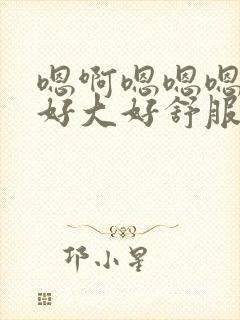 嗯啊嗯嗯嗯
好大好舒服
邛小星